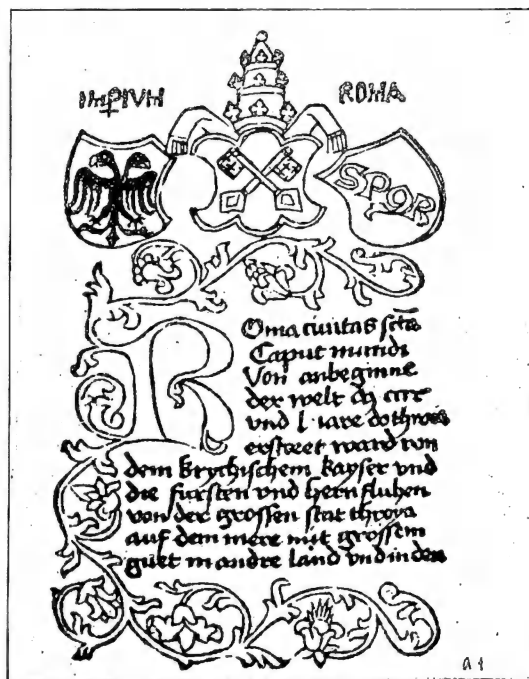 IMPIVM ROMA
SPQR
Roma ciuitas sctā
Caput mundi
Von anbeginne
der welt
vnd l iare do throia
erstoeret ward von
dem krychischem kayser vnd
die fursten vnd hern fluhen
von der grossen stat throya
auf dem mere mit grossem
guet in andre land vnd in den
a 1